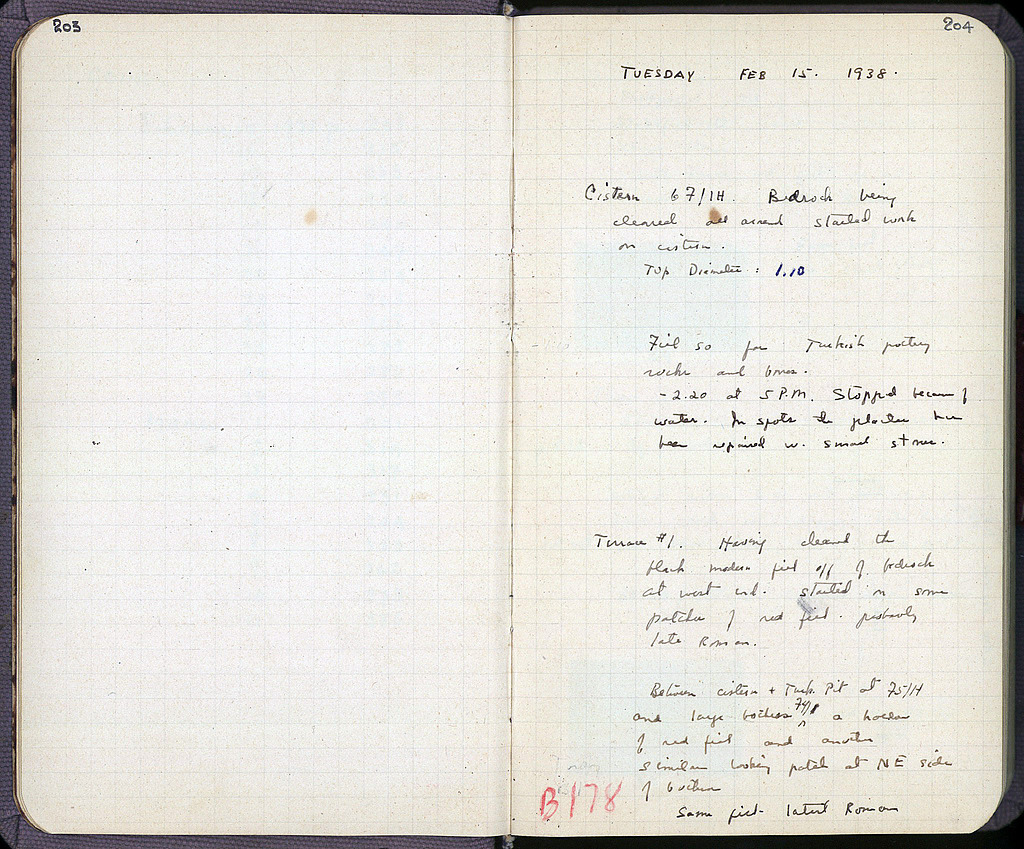 203
204
TUESDAY FEB 15. 1938.
Cistern 67/IH. Bedrock being
cleared all around started work
on cistern.
Top Diameter: 1.10
Fill so far Turkish pottery
rocks and bones.
-2.20 at 5 P.M. Stopped because of
water. In spots the plaster has
been repaired w. small stones.
Terrace #1. Having cleared the
black modern fill off of bedrock
at west end. started on some
patches of red fill. probably
late Roman.
Between cistern + Turk. Pit at 75/IH
and large bothros a
of red fill and another
similar looking patch at NE side
of bothros
B178
Same fill - latest Roman